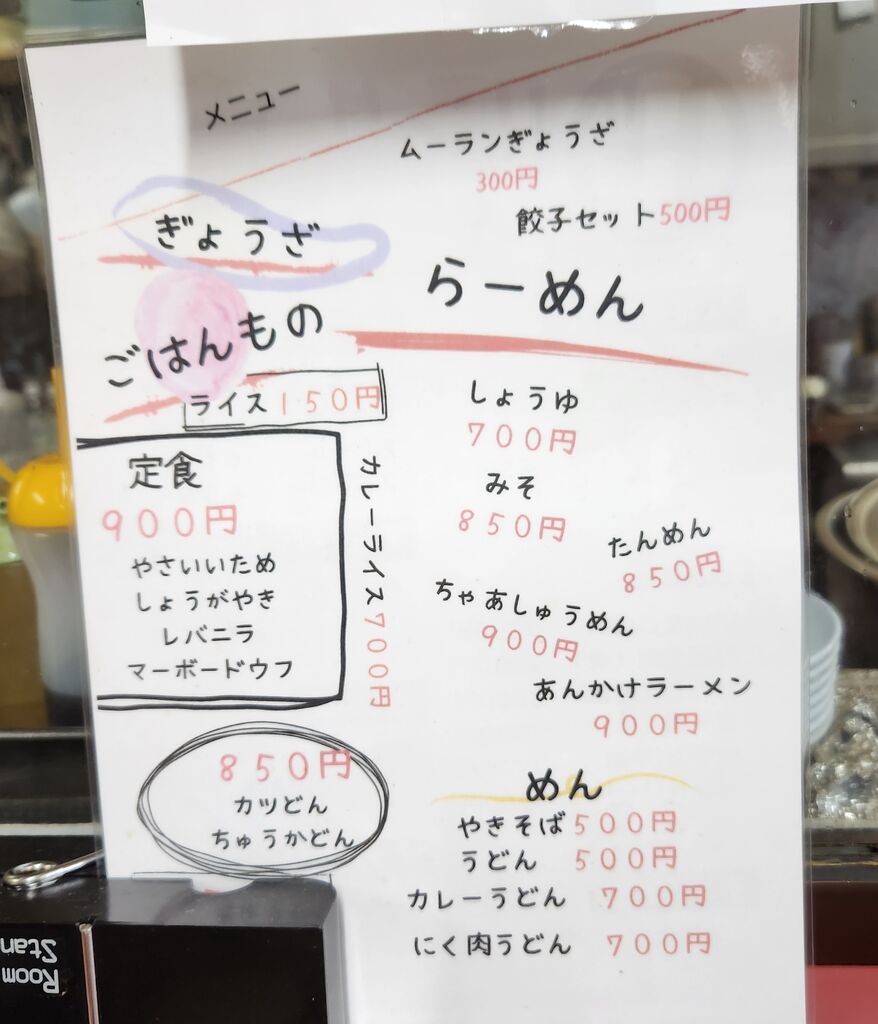 メニュー
ムーランぎょうざ
300円
餃子セット500円
ぎょうざ
ごはんもの
ライス 150円
定食
900円
やさいいため
しょうがやき
レバニラ
マーボードウフ
カレーライス700円
850円
カツどん
ちゅうかどん
らーめん
しょうゆ
700円
みそ
850円
たんめん
850円
ちゃあしゅうめん
900円
あんかけラーメン
900円
めん
やきそば500円
うどん 500円
カレーうどん 700円
にく肉うどん 700円
Room
Stan